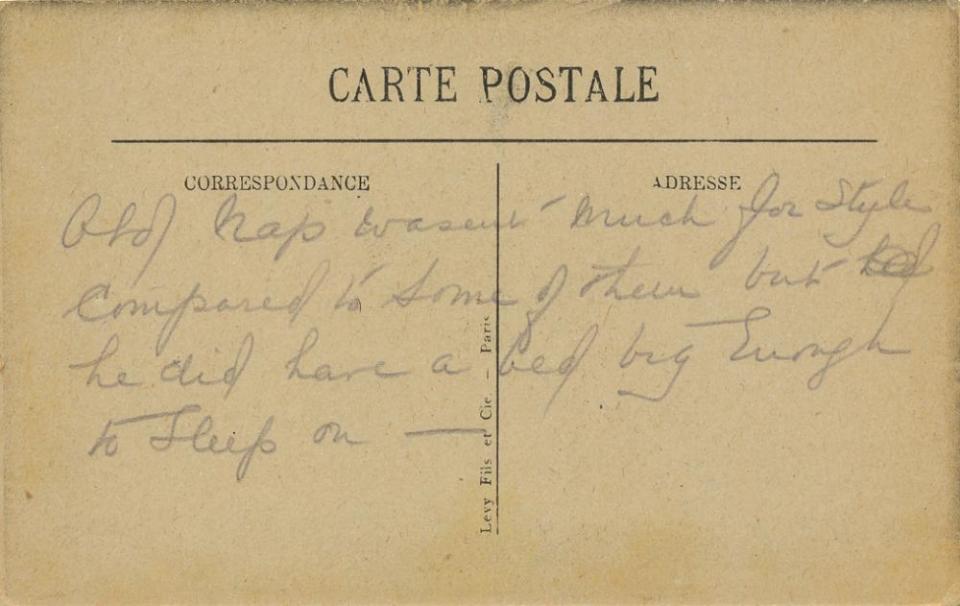 CARTE POSTALE
CORRESPONDANCE
ADRESSE
Old Nap wasent much for Style
Compared to Some of them but
he did have a bed big Enough
to Sleep on —
Levy Fils et Cie. – Paris